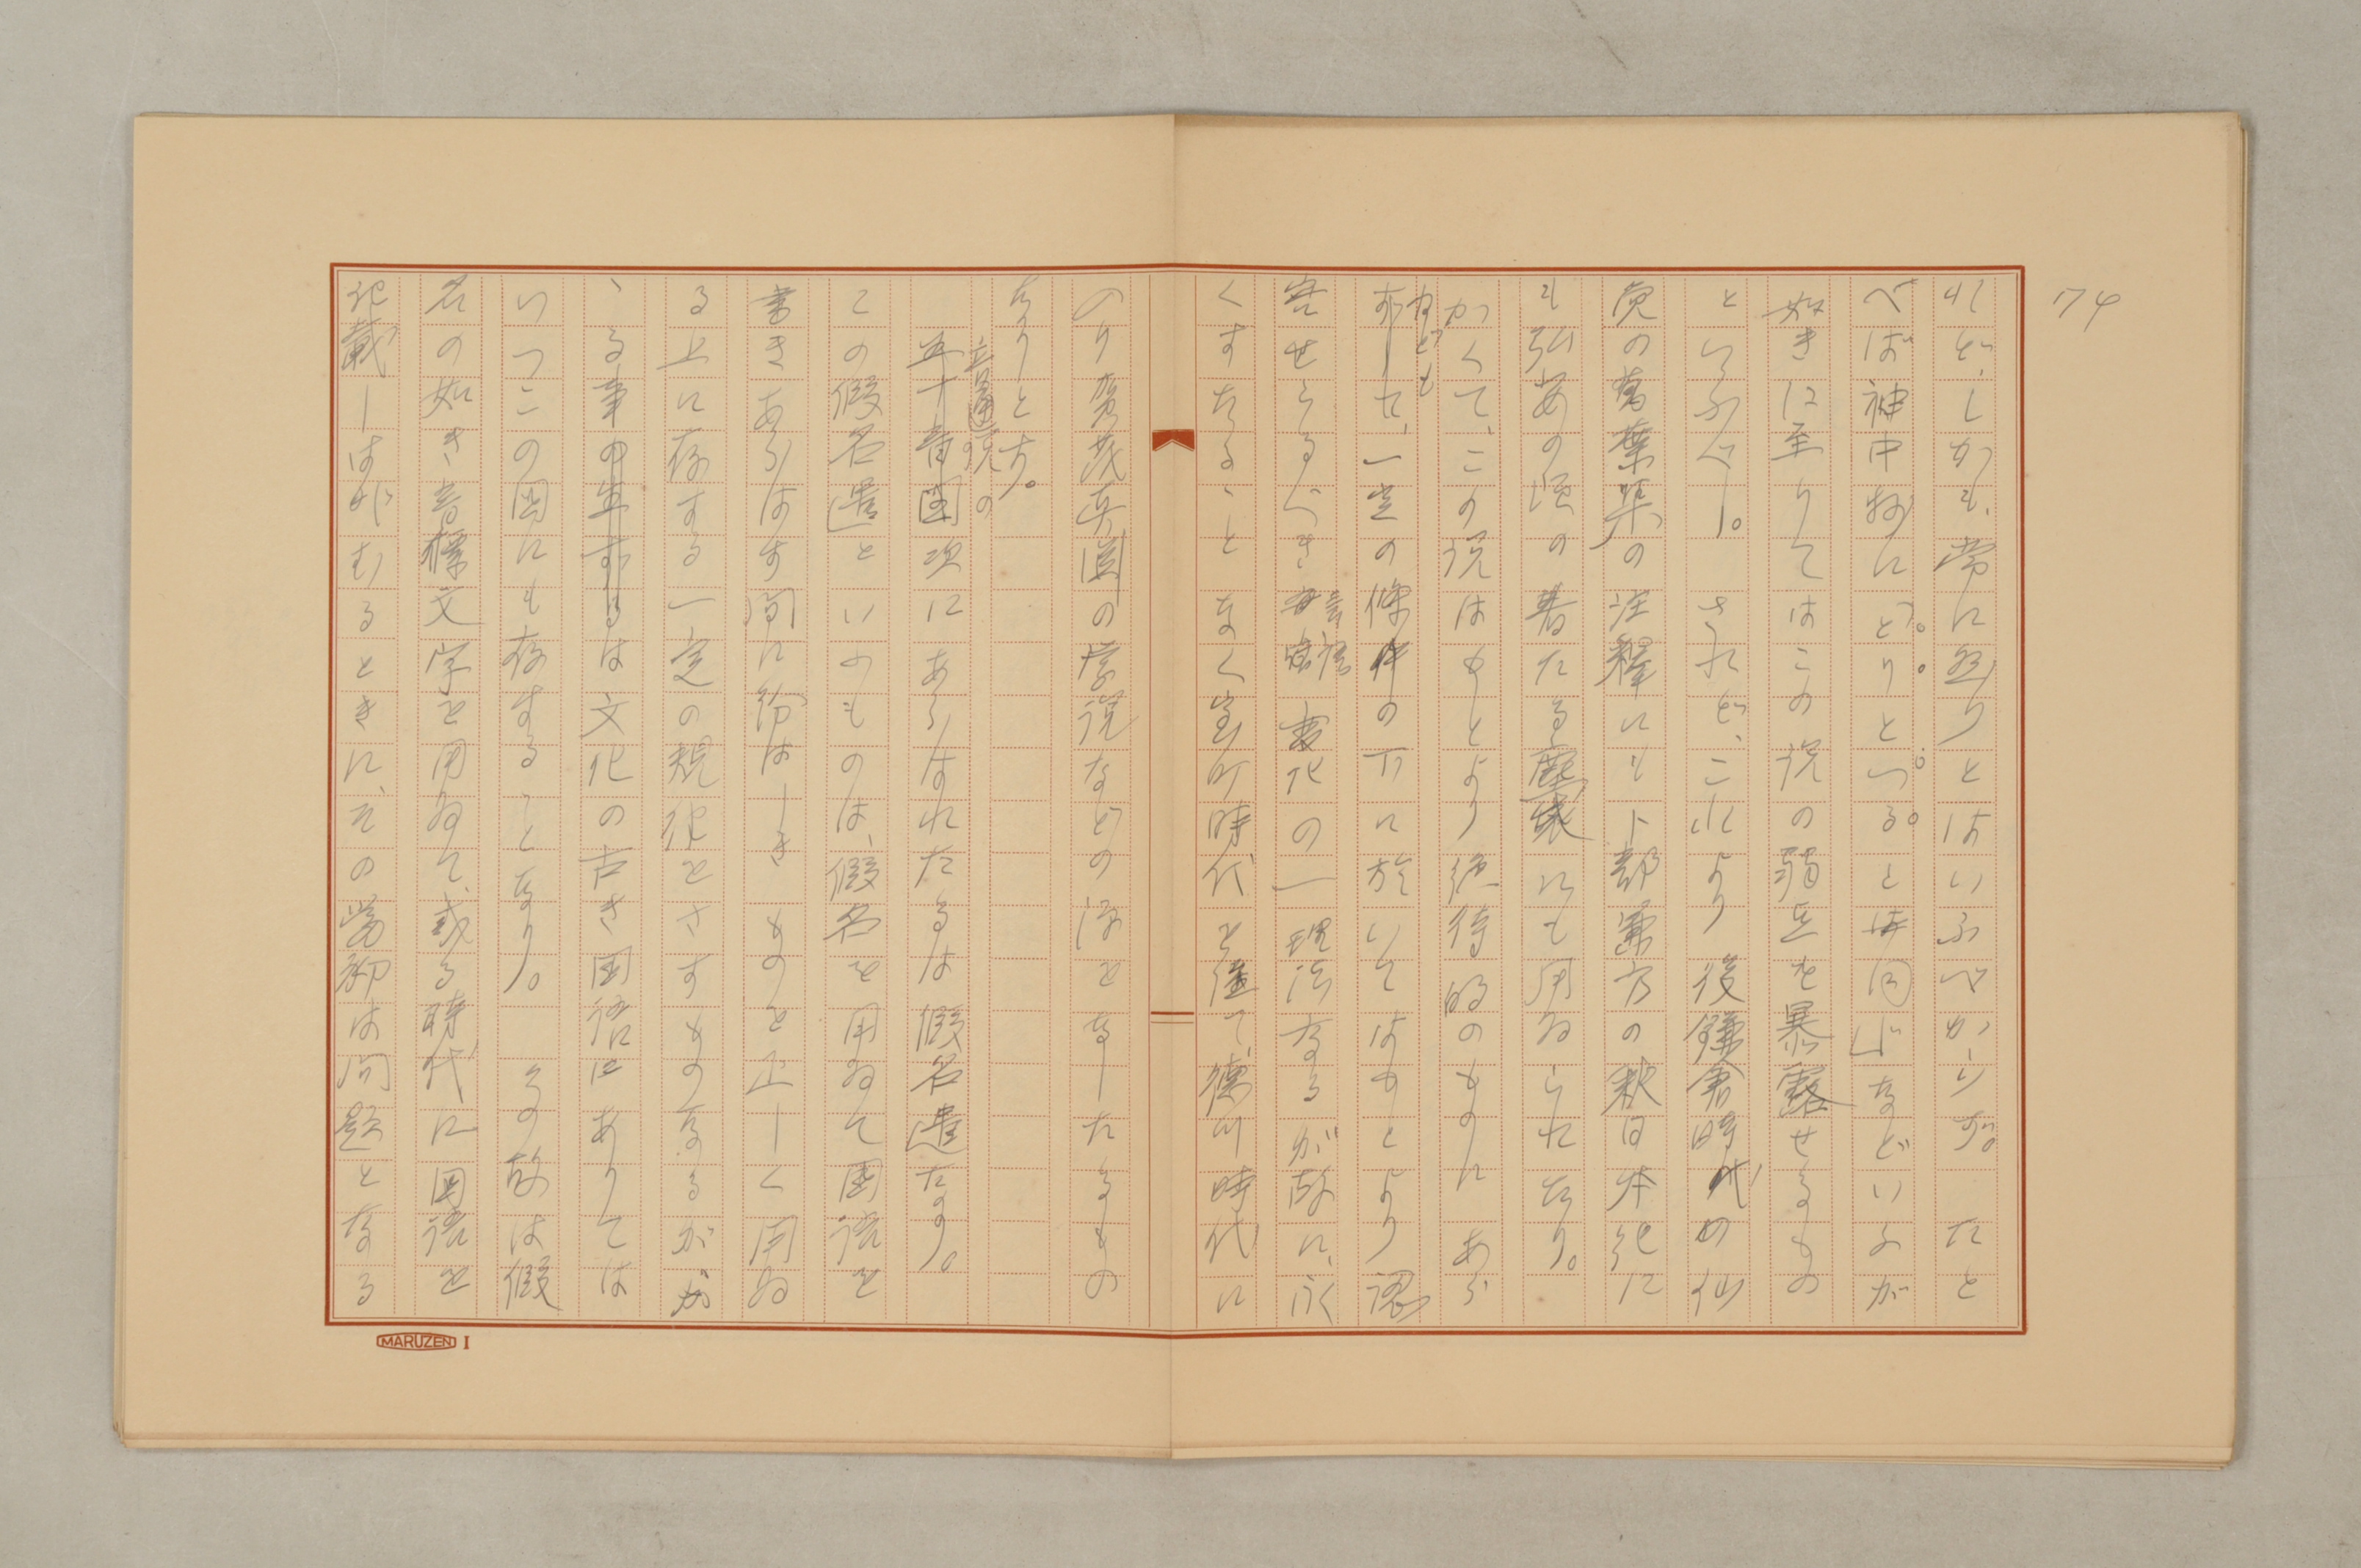 74
れど、しかも、常に然りとはいふべからず。たと
べば神中抄にどりといへるとは同じなどいふが
如きに至りてはこの説の弱点を暴露せるもの
といふべし。されど、これより後鎌倉時代の仙
覚の萬葉集の注釋にも卜部兼方の釈日本紀に
も弘安の頃の著たる塵袋にも用ゐられたり。
かくて、この説はもとより絶待的のものにあら
ねども
ずして、一定の條件の下に於いてはもとより認
容せらるべき
音韻
変化の一理法なるが故に、永
くすたるゝことなく室町時代を経て、徳川時代に
のり賀茂真淵の学説などの源をなしたるもの
なりとす。
音通説の
五十音図次にあらはれたるは假名遣なり。
この假名遣といふものは、假名を用ゐて国語を
書きあらはす間に紛はしきものを正しく用ゐ
る上に存する一定の規律をさすものなるが、か
ゝる事の生ずるは文化の古き国語にありては
いつこの国にも存することなり。その故は假
名の如き音標文字を用ゐて、或る時代に国語を
記載しはじむるときに、その当初は問題となる
MARUZEN I